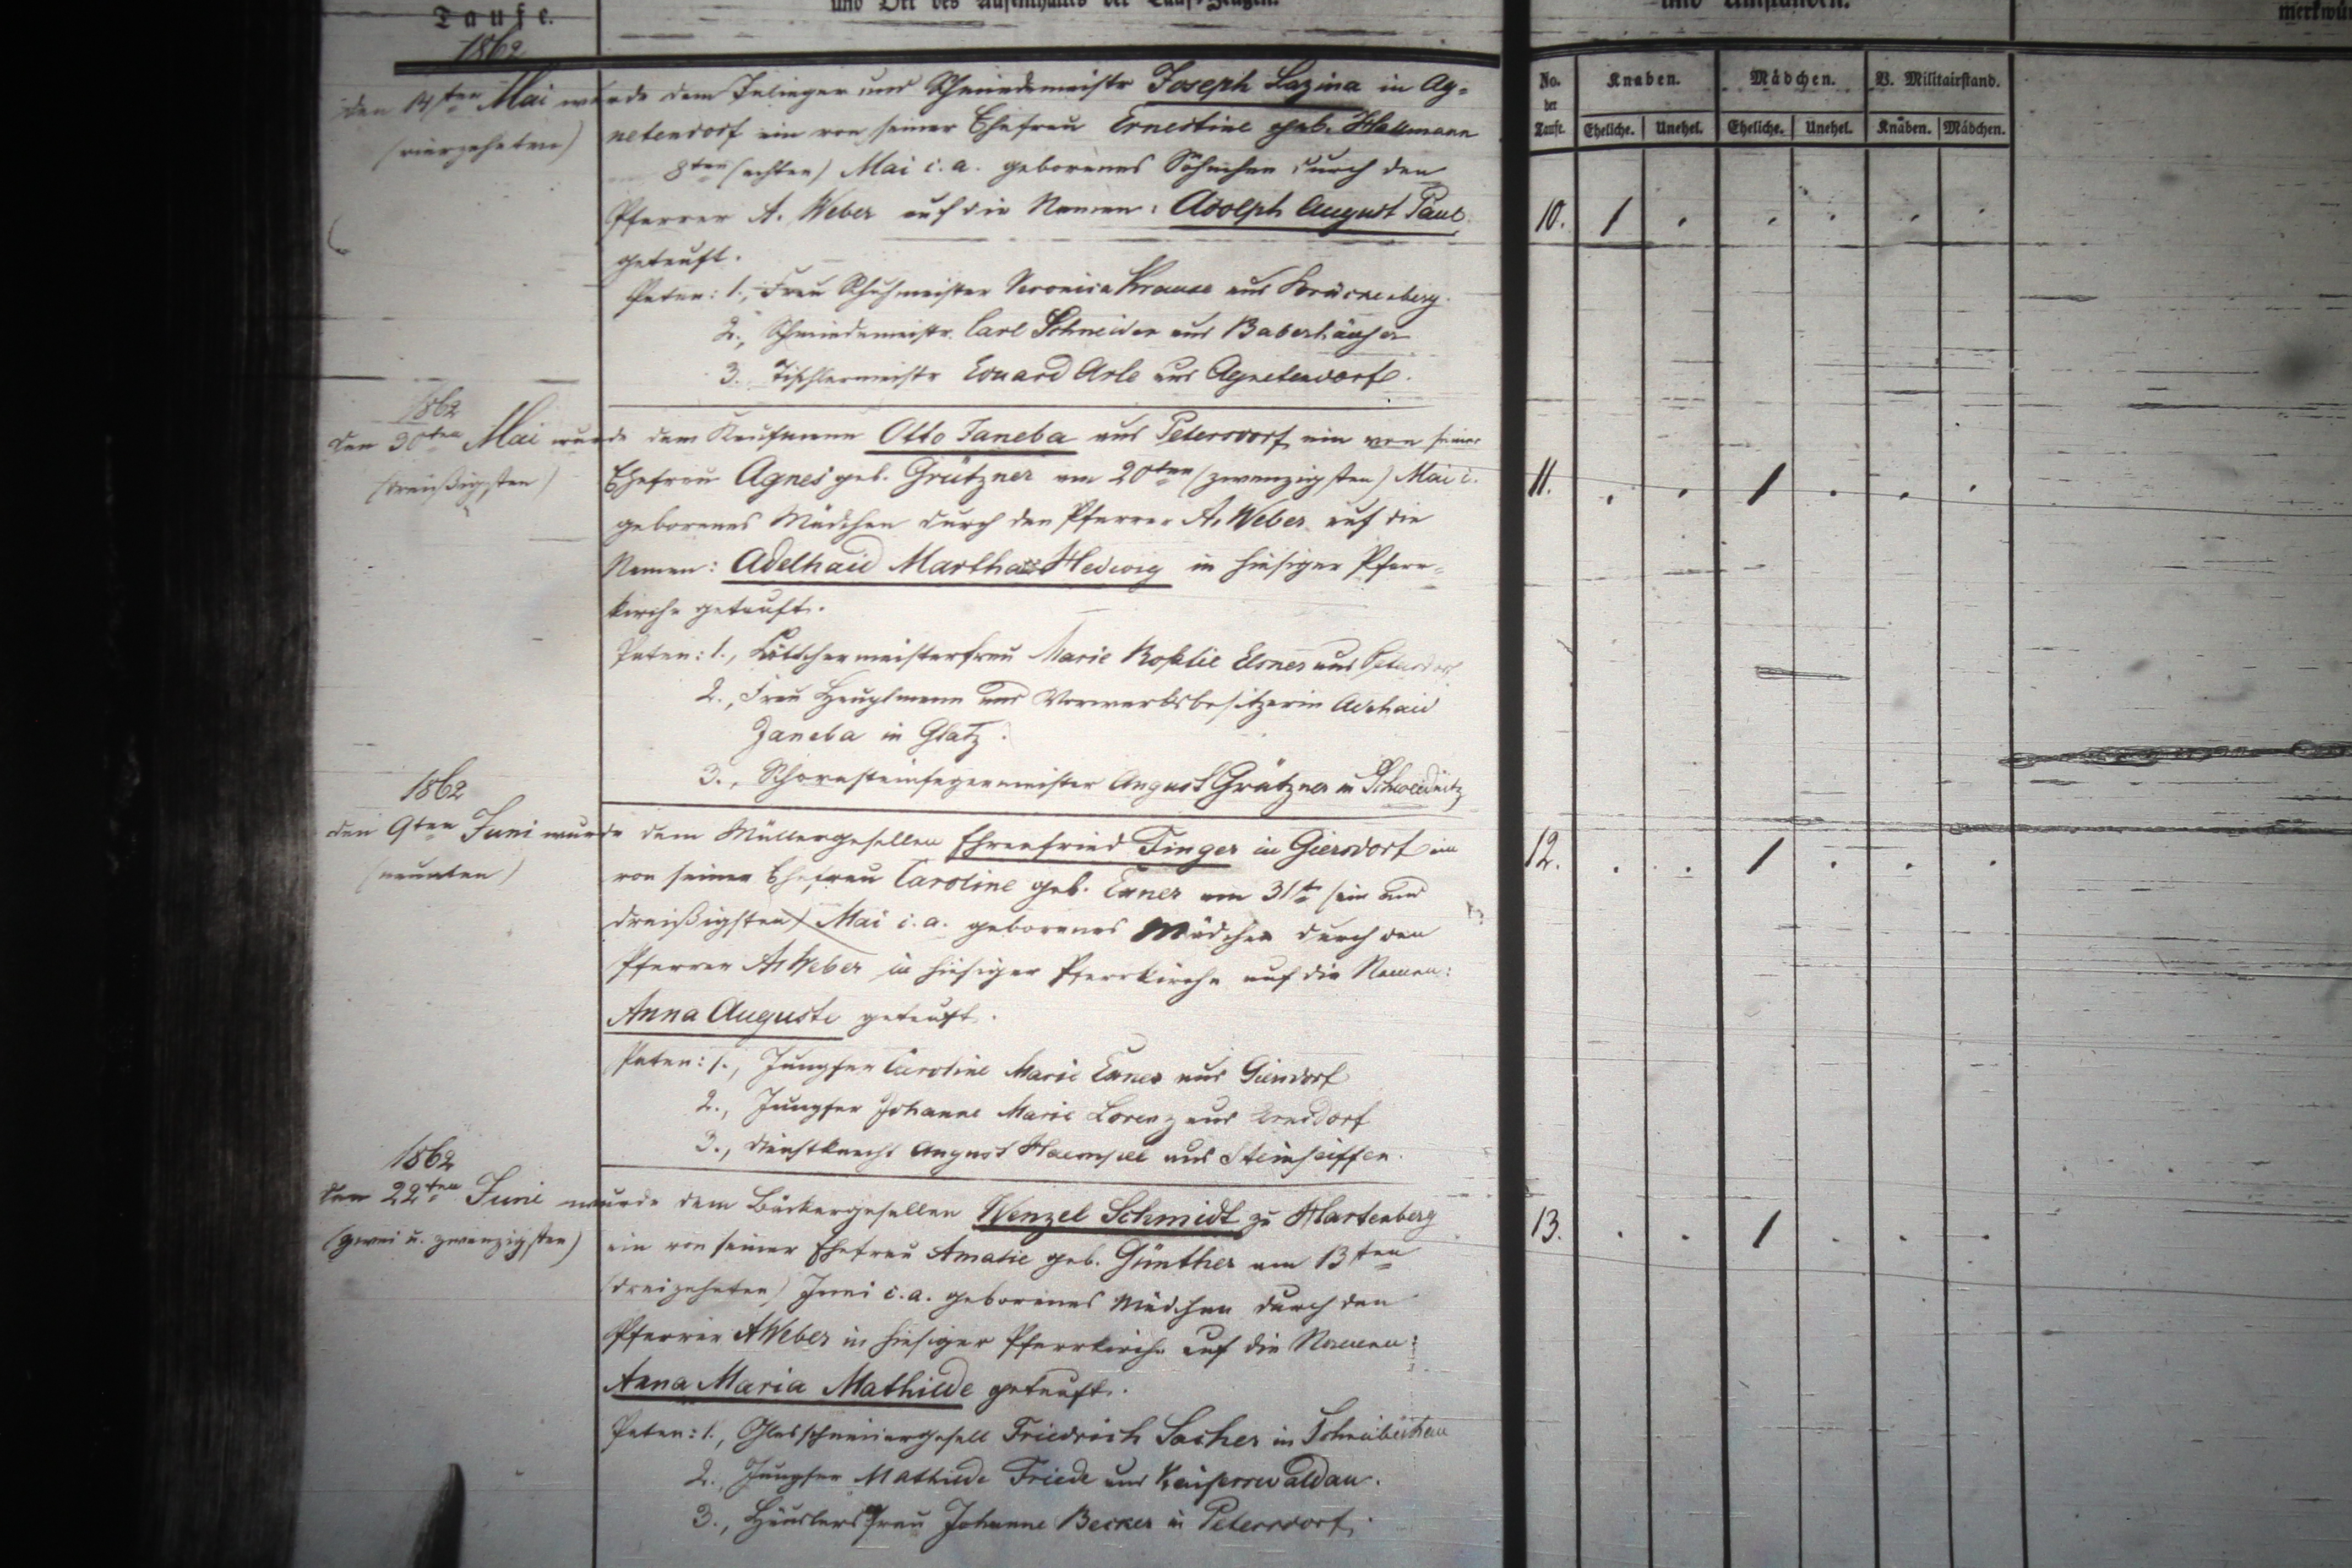 Taufe.
und Ort des Aufenthaltes der Tauf-Zeugen.
und Umständen.
No. der Taufe.
Knaben.
Mädchen.
V. Militairstand.
Eheliche. Unehel. Eheliche. Unehel. Knaben. Mädchen.
1862
den 14ten Mai wurde dem Inlieger und Schmiedemeister Joseph Lazina in Ag-
(vierzehnten)
netendorf ein von seiner Ehefrau Ernestine geb. Hallmann
8ten (achten) Mai c. a. geborenes Söhnchen durch den
Pfarrer A. Weber auf die Namen: Adolph August Paul
10. 1
getauft.
Paten: 1., Frau Schuhmeister Veronica Krause aus Brückenberg.
2., Schmiedemeistr. Carl Schneider aus Baberhäuser
3. Tischlermeistr Eduard Arlt aus Agnetendorf.
1862
den 30ten Mai wurde dem Kaufmann Otto Janeba aus Petersdorf ein von seiner
(dreißigsten)
Ehefrau Agnes geb. Grützner am 20ten (zwanzigsten) Mai c.
11. 1
geborenes Mädchen durch den Pfarrer A. Weber auf die
Namen: Adelhaid Martha Hedwig in hiesiger Pfarr-
kirche getauft.
Paten: 1., Böttchermeisterfrau Marie Elsner aus Petersdorf
2., Frau Hauptmann und Vorwerksbesitzerin Adelhaid
Janeba in Glatz.
3., Schornsteinfegermeister August Grützner in Schweidnitz
1862
den 9ten Juni wurde dem Müllergesellen Ehrenfried Finger in Giersdorf ein
(neunten)
12. 1
von seiner Ehefrau Caroline geb. Exner am 31te (ein und
dreißigsten) Mai c. a. geborenes Mädchen durch den
Pfarrer A. Weber in hiesiger Pfarrkirche auf die Namen:
Anna Auguste getauft.
Paten: 1., Jungfer Caroline Marie Exner aus Giersdorf
2., Jungfer Johanne Marie Lorenz aus
3., Dienstknecht August aus Steinseiffen.
1862
den 22ten Juni wurde dem Bäckergesellen Wenzel Schmidt zu Hartenberg
(zwei u. zwanzigsten)
13. 1
ein von seiner Ehefrau Amalie geb. Günther am 13ten
(dreizehnten) Juni c. a. geborenes Mädchen durch den
Pfarrer A Weber in hiesiger Pfarrkirche auf die Namen:
Anna Maria Mathilde getauft.
Paten: 1., Glasschneidergesell Friedrich Sacher in Schreiberhau
2. Jungfer Mathilde Friede aus Kaiserswaldau.
3., Häuslersfrau Johanne Becker in Petersdorf.